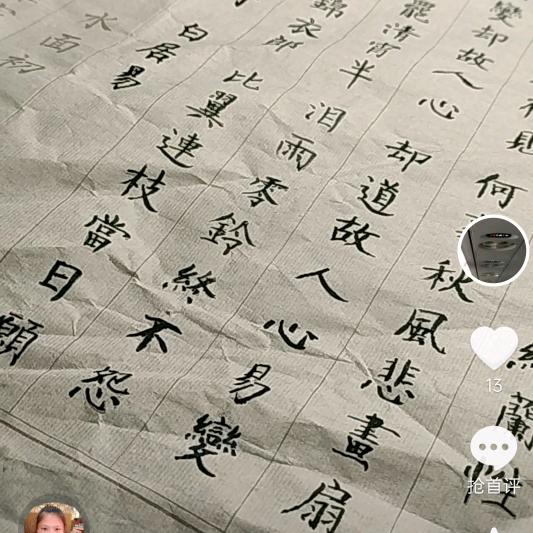 蘭
見何秋風悲畫扇
變却故人心却道故人心易變
罷清宵半泪雨零鈴終不怨
錦衣郎比翼連枝當日願
白居易
水面初
13
抢首评